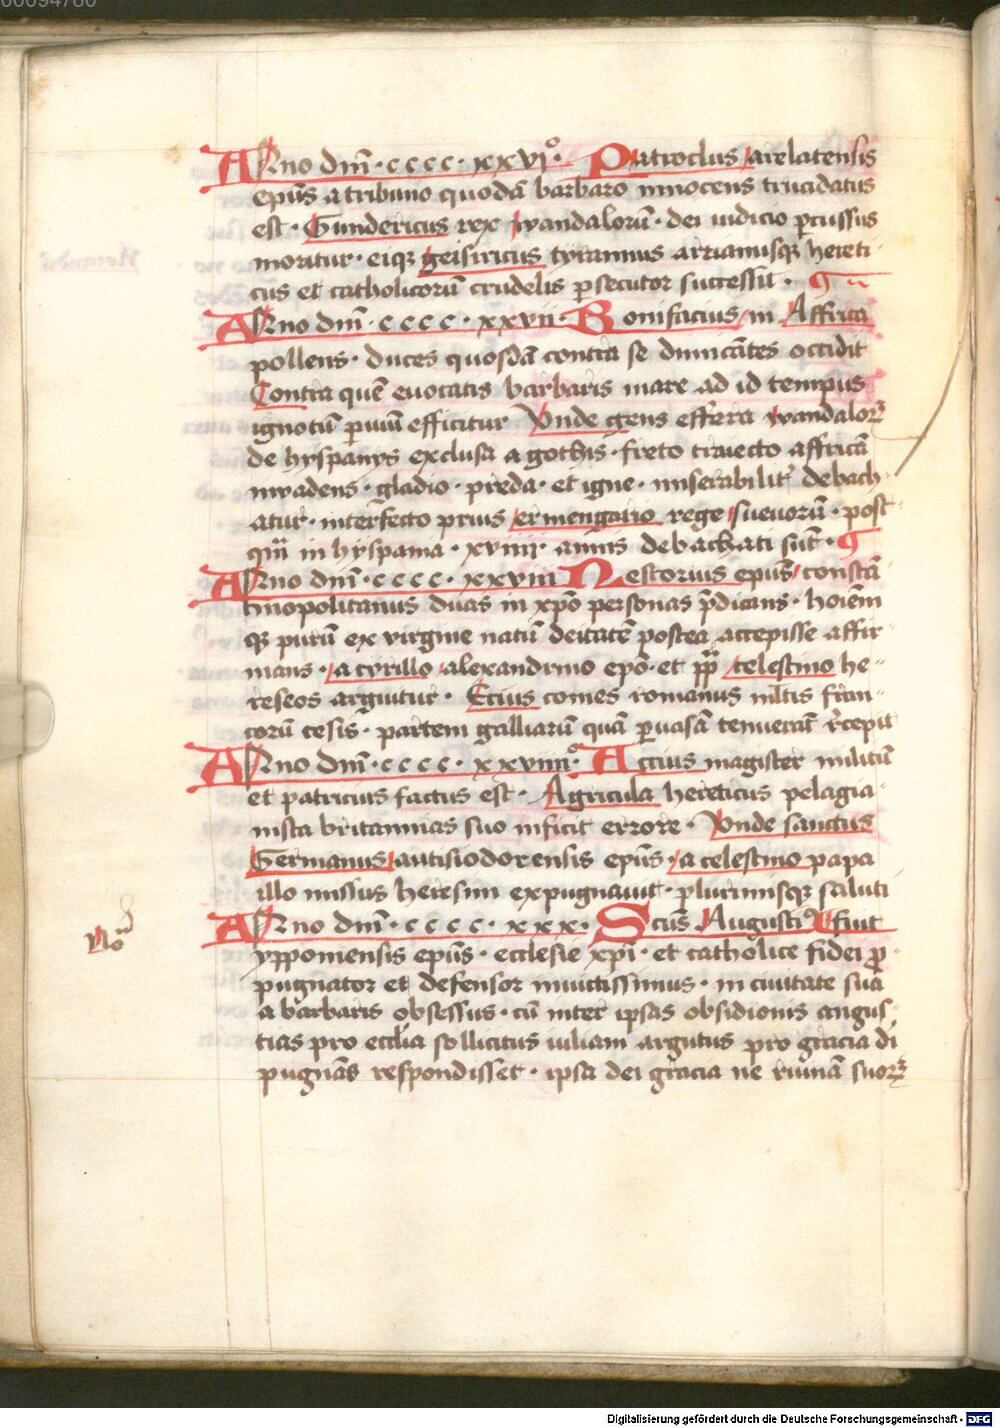 00094780
Anno dm̄ · c c c c · xxvıͦ · Patroclus arelatensis
epūs a tribuno quodā barbaro innocens trucidatus
est · Gundericus rex wandalorū · dei iudicio ꝑcussus
moritur · eiqꝫ geisiricus tyrannus arrianusqꝫ hereti
cus et catholicorū crudelis ꝑsecutor successit ·
Anno dm̄ · c c c c · xxvii · Bonifacius in Affrica
pollens · duces quosdā contra se dimicātes occidit
Contra quē euocatis barbaris mare ad id tempus
ignotū ꝑuiū efficitur Vnde gens effera wandaloꝝ
de hyspanys exclusa a gothis · freto traiecto affricā
inuadens · gladio · preda · et igne · miserabilit̉ debach
atur · interfecto prius ermengario rege sueuorū · post
qm̄ in hyspania · xviiii · annis debachati sūt ·
Anno dm̄ · c c c c · xxviii Nestorius epūs constā
tinopolitanus duas in xp̄o personas p̄dicans · hoiēm
qꝫ purū ex virgine natū deitatē postea accepisse affir
mans · a cyrillo alexandrino ep̄o · et pp̄ celestino he-
reseos arguitur · Ecius comes romanus ml̄tis fran-
corū cesis · partem galliarū quā ꝑuasā tenuerāt recepit
Anno dm̄ · c c c c · xxviiiıͦ · Accius magister militū
et patricius factus est · Agricula hereticus pelagia-
nista britannias suo inficit errore · Vnde sanctus
Germanus autisiodorensis epūs · a celestino papa
illo missus heresim expugnauit · plurimisqꝫ saluti
Anno dm̄ · c c c c · xxx · Scūs Augusti⁹ fuit
No
ypponiensis epūs · ecclesie xp̄i · et catholice fidei ꝓ
pugnator et defensor inuictissimus · in ciuitate sua
a barbaris obsessus · cū inter ipsas obsidionis angus
tias pro ecclīa sollicitus iuliani argutus pro gracia di
pugnās respondisset · ipsa dei gracia ne ruinā suoꝝ
Digitalisierung gefördert durch die Deutsche Forschungsgemeinschaft - DFG